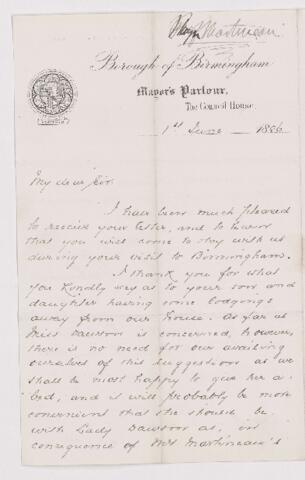 Martineau
Borough of Birmingham
Mayor's Parlour,
The Council House.
1st June 1886
My dear Sir,
I have been much pleased
to receive your letter, and to know
that you will come to stay with us
during your visit to Birmingham.
I thank you for what
you kindly say as to your son and
daughter having some lodgings
away from our house. As far as
Miss Dawson is concerned, however,
there is no need for our availing
ourselves of this suggestion as we
shall be most happy to give her a
bed, and it will probably be more
convenient that she should be
with Lady Dawson as, in
consequence of Mrs Martineau's